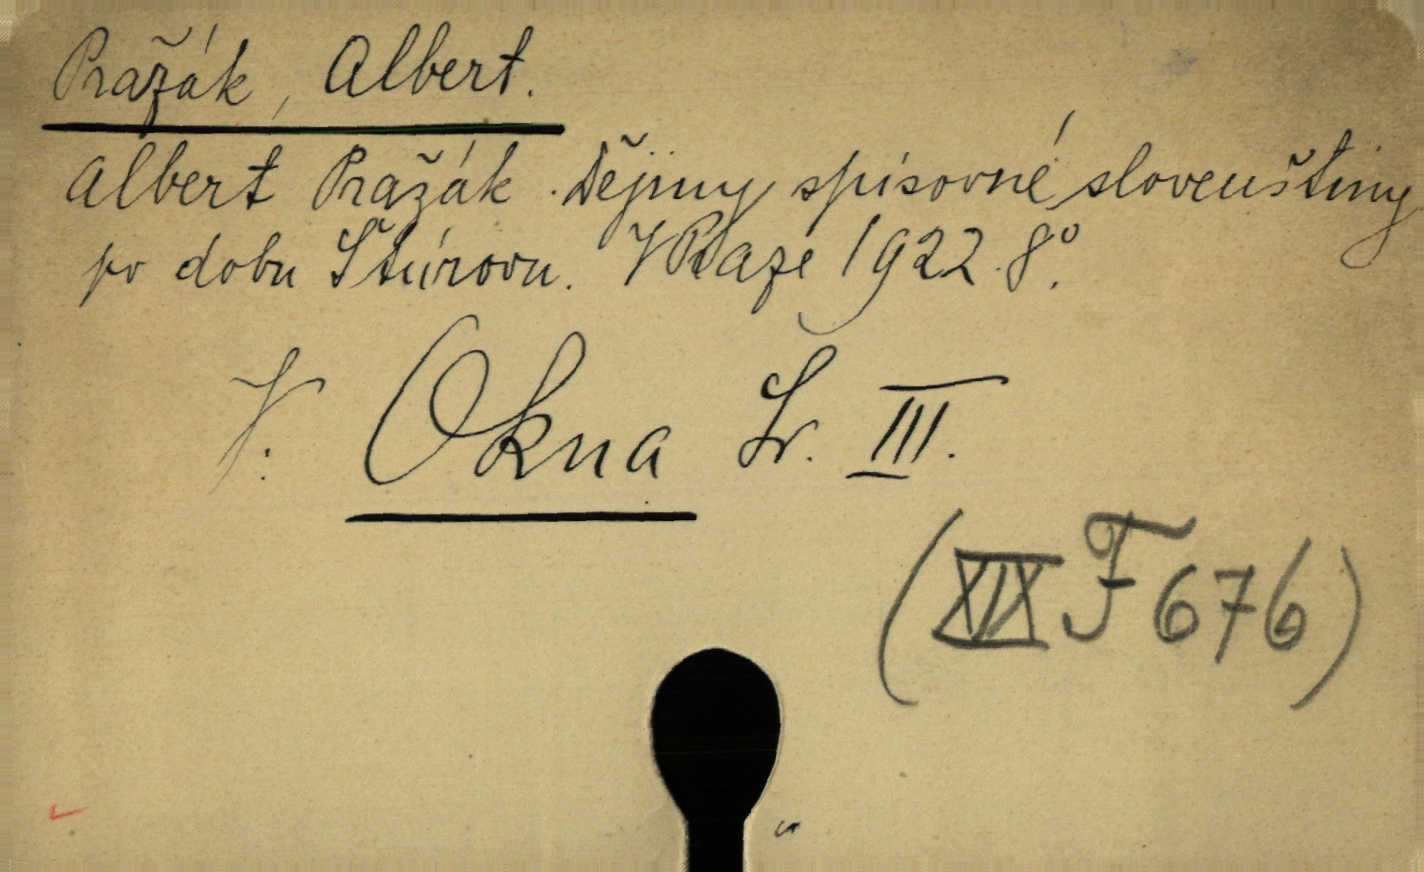 Pražák, Albert.
Albert Pražák. Dějiny spisovné slovenštiny
po dobu Štúrovu. V Praze 1922. 8°.
V. Okna Sv. III.
(XIX F 676)